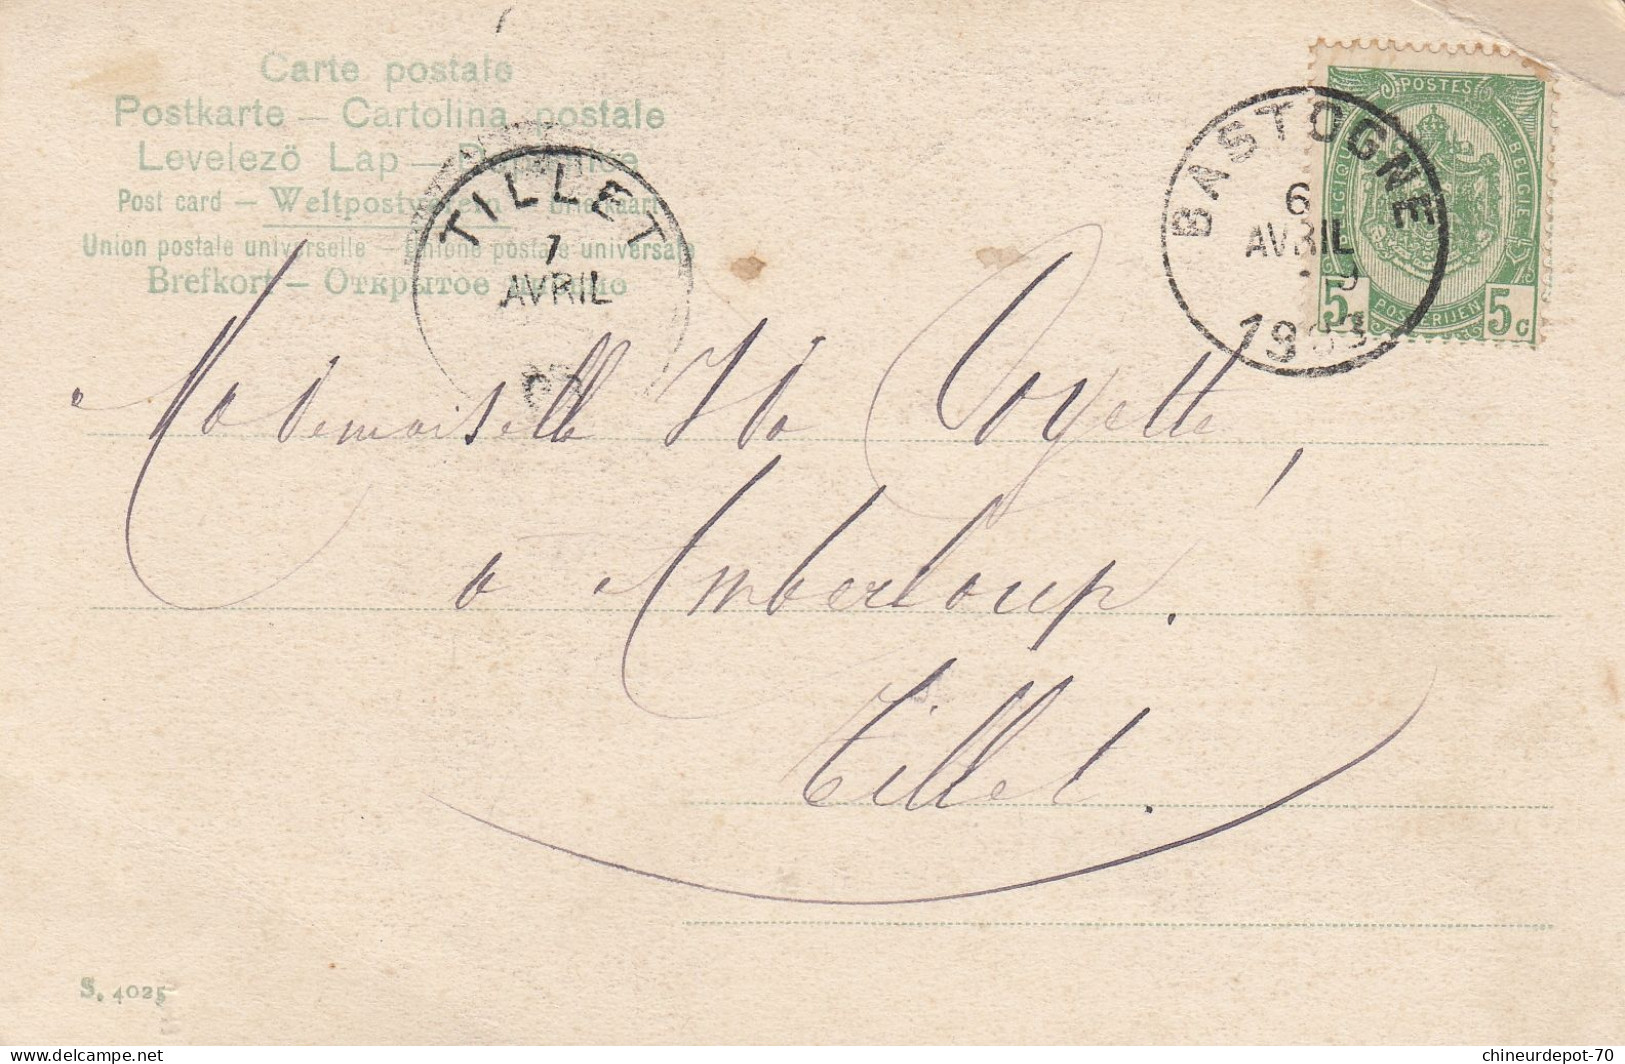 Carte postale
Postkarte – Cartolina postale
Levelezö Lap –
Post card – Weltpostverein – Briefkaart
Union postale universelle – Unione postale universale
Brefkort – Открытое письмо
TILLET
7
AVRIL
03
BASTOGNE
6
AVRIL
1903
POSTES
BELGIQUE
BELGIE
POSTERIJEN
5 5c
Mademoiselle Ida Goyette,
à Amberloup.
Tillet.
S. 4025
chineurdepot-70